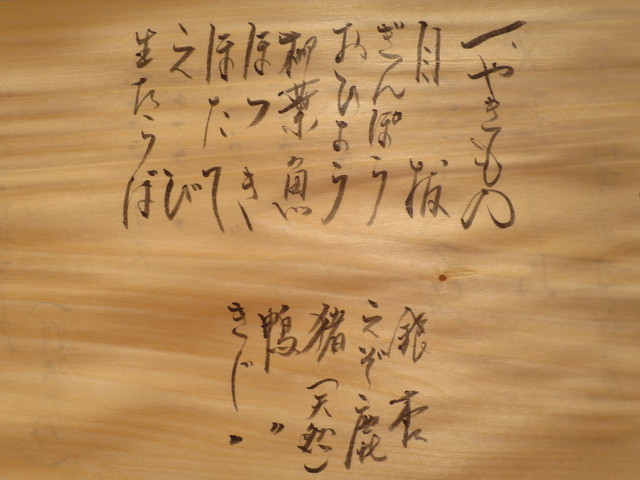 一、やきもの
目抜
ぎんぽう
おひょう
柳葉魚
ほっき
ほたて
えび
生たらほ
銀杏
えぞ鹿
猪(天然)
鴨 〃
きじ 〃